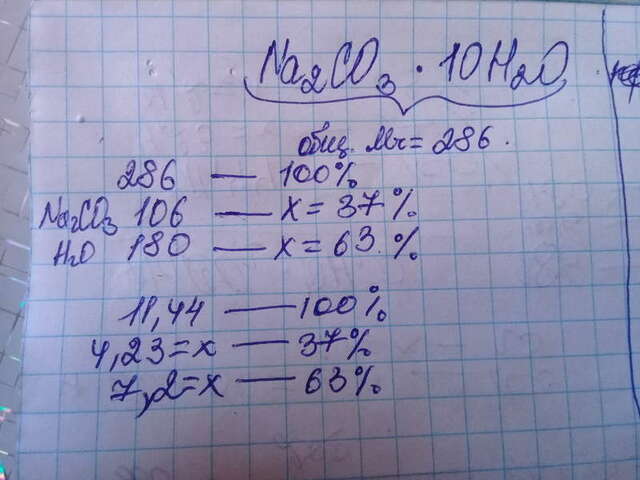 Na2CO3 · 10H2O
общ. Mr = 286.
286 — 100%
Na2CO3 106 — x = 37%
H2O 180 — x = 63%
11,44 — 100%
4,23 = x — 37%
7,2 = x — 63%